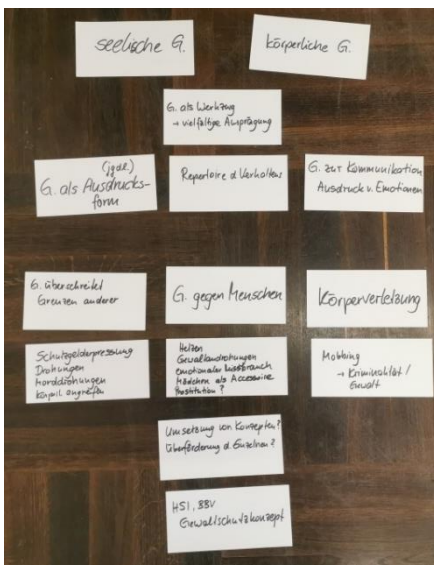 seelische G.
körperliche G.
G. als Werkzeug
→ vielfältige Ausprägung
(jgdl.)
G. als Ausdrucks-
form
Repertoire d. Verhaltens
G. zur Kommunikation
Ausdruck v. Emotionen
G. überschreitet
Grenzen anderer
G. gegen Menschen
Körperverletzung
Schutzgelderpressung
Drohungen
Morddrohungen
körperl. angreifen
Hetzen
Gewaltandrohungen
emotionaler Missbrauch
Mädchen als Accessoire
Prostitution?
Mobbing
→ Kriminalität /
Gewalt
Umsetzung von Konzepten?
Überforderung d. Einzelnen?
HSI, BBV
Gewaltschutzkonzept